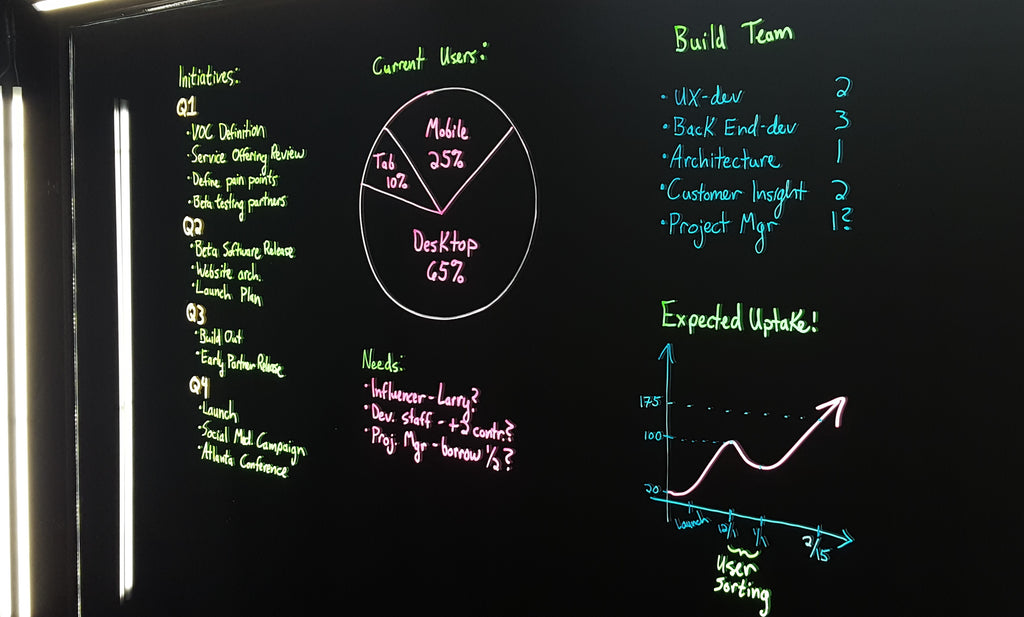 Initiatives:
Q1
• VOC Definition
• Service Offering Review
• Define pain points
• Beta testing partners
Q2
• Beta Software Release
• Website arch.
• Launch Plan
Q3
• Build Out
• Early Partner Release
Q4
• Launch
• Social Med. Campaign
• Atlanta Conference
Current Users:
Mobile
25%
Tab
10%
Desktop
65%
Needs:
• Influencer - Larry?
• Dev. staff - +3 contr.?
• Proj. Mgr - borrow 1/2?
Build Team
• UX-dev 2
• Back End-dev 3
• Architecture 1
• Customer Insight 2
• Project Mgr 1?
Expected Uptake!
175
100
20
Launch 12/1 1/1 2/15
User
Sorting